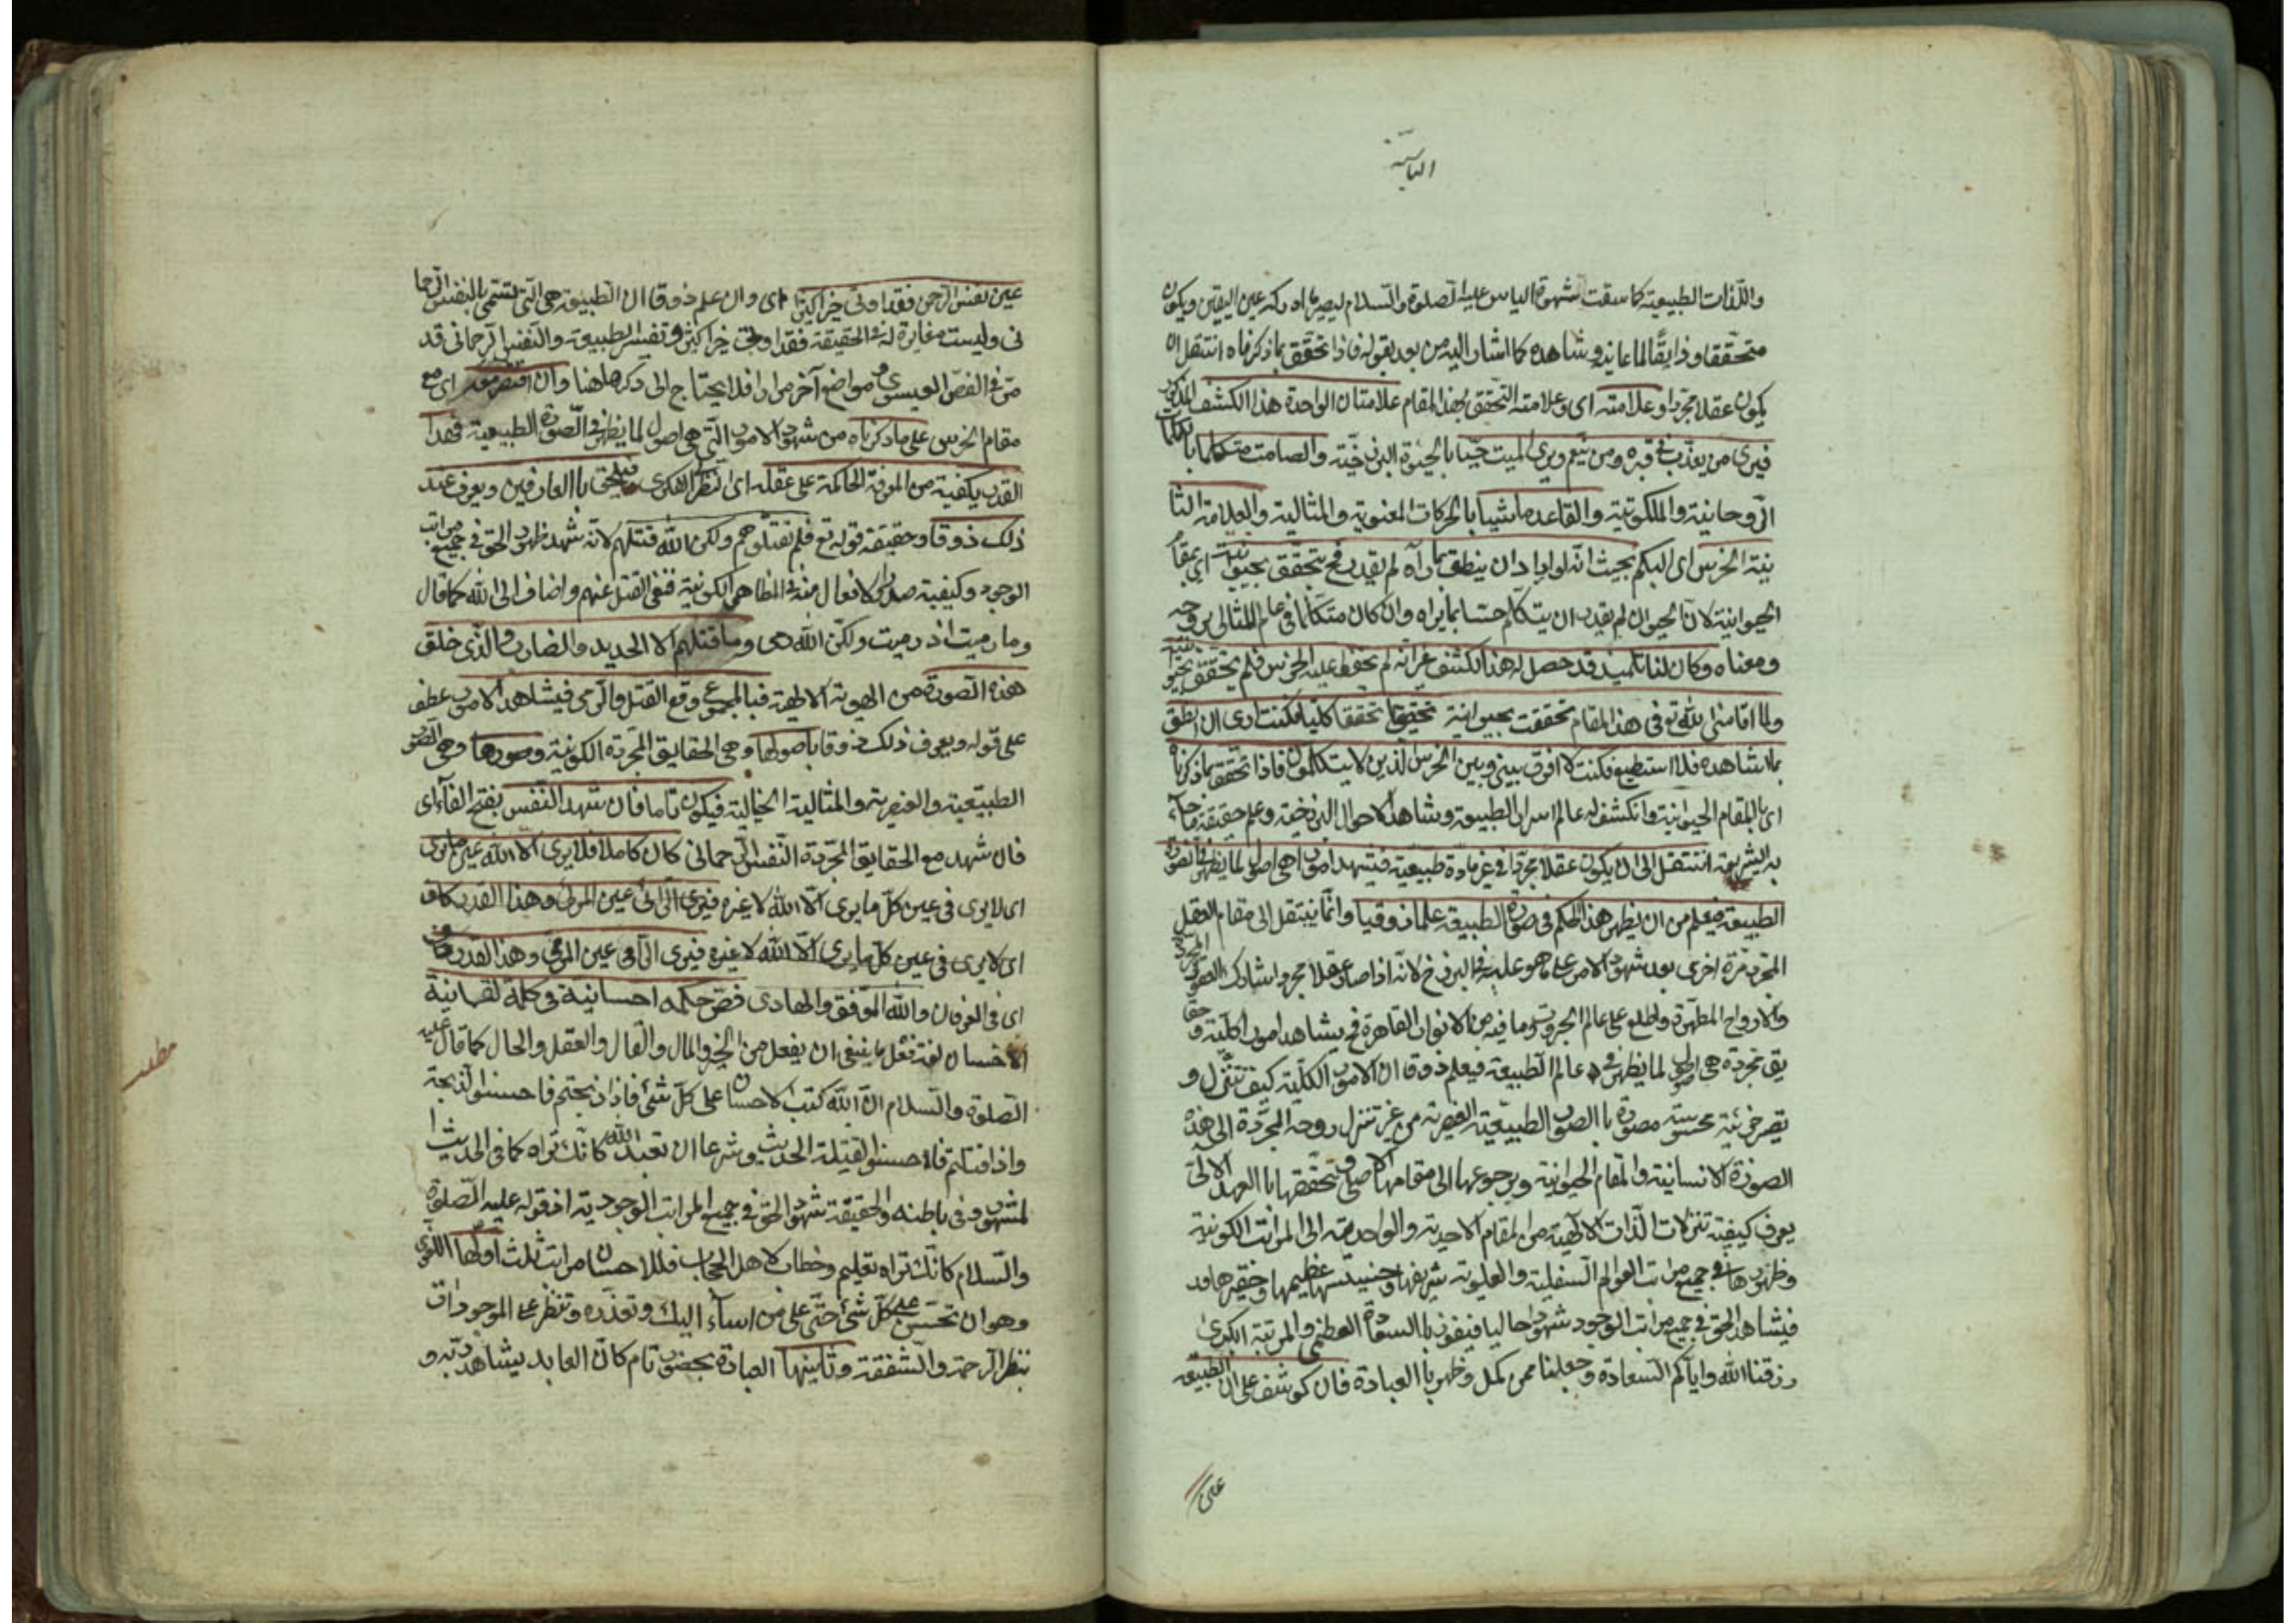 الياسية
واللذات الطبيعية كما سقت شهوة الياس عليه الصلوة والسلام ليصير ما ادركه عين اليقين ويكون
متحققا وذايقا لما عاينه وشاهده كما اشار اليه من بعد بقوله فاذا تحقق بما ذكرناه انتقل الى ان
يكون عقلا مجردا وعلامته اى وعلامة التحقق بهذا المقام علامتان الواحدة هذا الكشف المذكور
فيرى من يعذب فى قبره ومن ينعم ويرى الميت حيا بالحيوة البرزخية والصامت متكلما بالكلمات
الروحانية والملكوتية والقاعد ماشيا بالحركات المعنوية والمثالية والعلامة الثا
نية الخرس اى البكم بحيث انه لو اراد ان ينطق بما رآه لم يقدر فح يتحقق بحيوانيته اى بمقام
الحيوانية لان الحيوان لم يقدر ان يتكلم حسا بما يراه وان كان متكلما فى عالم المثالى بروحه
ومعناه وكان لنا تلميذ قد حصل له هذا الكشف غير انه لم يحفظ عليه الخرس فلم يتحقق بحيوانيته
ولما اقامنى الله تع فى هذا المقام تحققت بحيوانيتى تحققا كليا فكنت ارى ان انطق
بما اشاهده فلا استطيع فكنت لا افرق بينى وبين الخرس الذين لا يتكلمون فاذا تحقق بما ذكرناه
اى بالمقام الحيوانية وانكشف له عالم اسرار الطبيعة وشاهد الاحوال البرزخية وعلم حقيقة ما جآء
به الشريعة انتقل الى ان يكون عقلا مجردا فى غير مادة طبيعية فيشهد امورا هى اصول لما يظهر فى الصورة
الطبيعية فيعلم من اين يظهر هذا الحكم فى صورة الطبيعة علما ذوقيا وانما ينتقل الى مقام العقل
المجرد مرة اخرى بعد شهود الامر على ما هو عليه فى البرزخ لانه اذا صار عقلا مجردا شارك العقول المجردة
والارواح المطهرة واطلع على عالم الجبروت وما فيه من الانوار القاهرة فح يشاهد امورا كلية وحقا
يق مجردة هى اصول لما يظهر فى عالم الطبيعة فيعلم ذوقا ان الامور الكلية كيف تنزل و
تصير جزئية محسوسة مصورة بالصور الطبيعية العنصرية من غير تنزل روحه المجردة الى هذه
الصورة الانسانية والمقام الحيوانية ويرجوعها الى مقامها الاصلى وتحققها با العهد الازلى
يعرف كيفية تنزلات الذات الالهية من المقام الاحدية والواحدية الى المراتب الكونية
وظهورها فى جميع مراتب العوالم السفلية والعلوية شريفها وخسيسها عظيمها وحقيرها قد
فيشاهد الحق فى جميع مراتب الوجود شهودا حاليا فيفوز با السعادة العظمى والمرتبة الكبرى
رزقنا الله واياكم السعادة وجعلنا ممن كمل وظهر با العبادة فان كوشف على ان الطبيعة
على
عين نفس الرحمن فقد اوتى خيرا كثيرا اى وان علم ذوقا ان الطبيعة هى التى تسمى بالنفس الرحما
نى وليست مغايرة له فى الحقيقة فقد اوتى خيرا كثيرا وتفسير الطبيعة والنفس الرحمانى قد
مر فى الفص العيسوى وفى مواضع آخر مرارا فلا يحتاج الى ذكرها هنا وان اقتصر معه اى مع
مقام الخرس على ما ذكرناه من شهود الامور التى هى اصول لما يظهر فى الصورة الطبيعية فهذا
القدر يكفيه من المعرفة الحاكمة على عقله اى النظر الفكرى فيلحق با العارفين ويعرف عند
ذلك ذوقا وحقيقة قوله تع فلم تقتلوهم ولكن الله قتلهم لانه شهد ظهور الحق فى جميع مراتب
الوجود وكيفية صدور الافعال منه فى المظاهر الكونية فنفى القتل عنهم واضاف الى الله كما قال
وما رميت اذ رميت ولكن الله رمى وما قتلهم الا الحديد والضارب والذى خلق
هذه الصورة من الهوية الالهية فبا المجموع وقع القتل والرمى فيشاهد الامور عطف
على قوله ويعرف ذلك ذوقا باصولها وهى الحقايق المجردة الكونية وصورها وهى الصور
الطبيعية والعنصرية والمثالية الخيالية فيكون تاما فان شهد النفس بفتح الفآء اى
فان شهد مع الحقايق المجردة النفس الرحمانى كان كاملا فلا يرى الا الله عين ما يرى
اى لا يرى فى عين كل ما يرى الا الله لا غيره فيرى الرائى عين المرئى وهذا القدر كاف
اى لا يرى فى عين كل ما يرى الا الله لا غيره فيرى الرآئى عين المرئى وهذا القدر كاف
اى فى العرفان والله الموفق والهادى فص حكمة احسانية فى كلمة لقمانية
الاحسان لغة فعل ما ينبغى ان يفعل من الخير والمال والقال والعقل والحال كما قال عليه
الصلوة والسلام ان الله كتب الاحسان على كل شئ فاذا ذبحتم فاحسنوا الذبحة
واذا قتلتم فاحسنوا القتلة الحديث وشرعا ان تعبد الله كانك تراه كما فى الحديث ا
لمشهور وفى باطنه والحقيقة شهود الحق فى جميع المراتب الوجودية اذ قوله عليه الصلوة
والسلام كانك تراه تعليم وخطاب لاهل الحجاب فللاحسان مراتب ثلث اولها اللغوى
وهو ان تحسن على كل شئ حتى على من اسآء اليك وتعذره وتنظر على الموجودات
بنظر الرحمة والشفقة وثانيها العبادة بحضور تام كان العابد يشاهد ربه و
مطلب